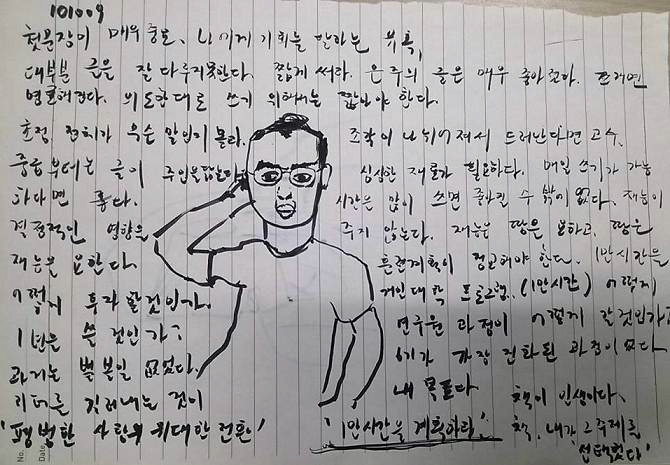 101009
첫문장이 매우중요, 나에게 기회를 달라는 유혹,
대부분 글은 잘 다루지못한다. 짧게 써라. 은주의 글은 매우 좋아졌다. 쓰려면
명쾌해진다. 의도한대로 쓰기 위해서는 짧아야 한다.
초점 전체가 무슨 말인지 몰라. 조각이 나뉘어져서 드러난다면 고수.
중급부터는 글이 주인을 닮는다. 싱싱한 재료가 필요하다. 매일 쓰기가 가능
하다면 좋다. 시간은 많이 쓰면 좋아질 수 밖에 없다. 재능이
결정적인 영향을 주지 않는다. 재능은 땀을 요하고, 땀은
재능을 요한다. 훈련계획이 정교해야 한다. 1만시간을
어떻게 투자 할것인가. 개인대학 프로그램. (1만시간) 어떻게
1년을 쓸 것인가? 연구원 과정이 어떻게 갈것인가?
과거는 별 볼일 없었다. 6기가 가장 진화된 과정이 었다
리더를 길러내는 것이 내 목표다 책이 인생이다.
'평범한 사람의 위대한 전환' '1만시간을 계획하라.' 책, 내가 그 주제를
선택했다'
No.
Date